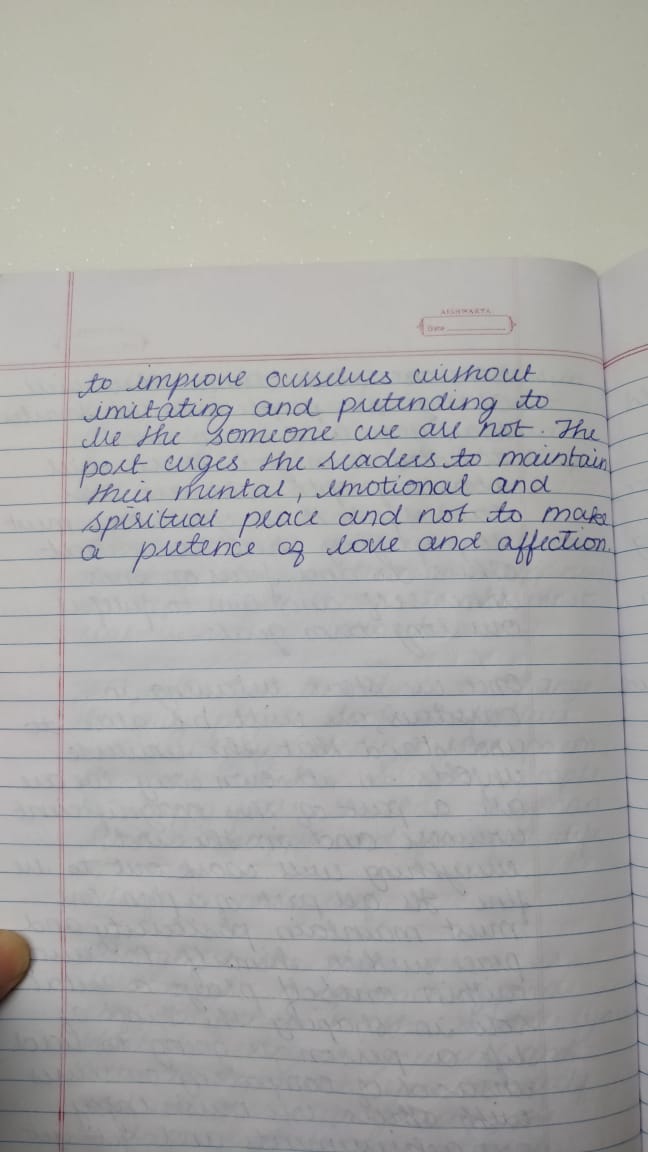 AISHWARYA
Date
to improve ourselves without
imitating and pretending to
be the someone we are not. The
poet urges the readers to maintain
their mental, emotional and
spiritual peace and not to make
a pretence of love and affection.